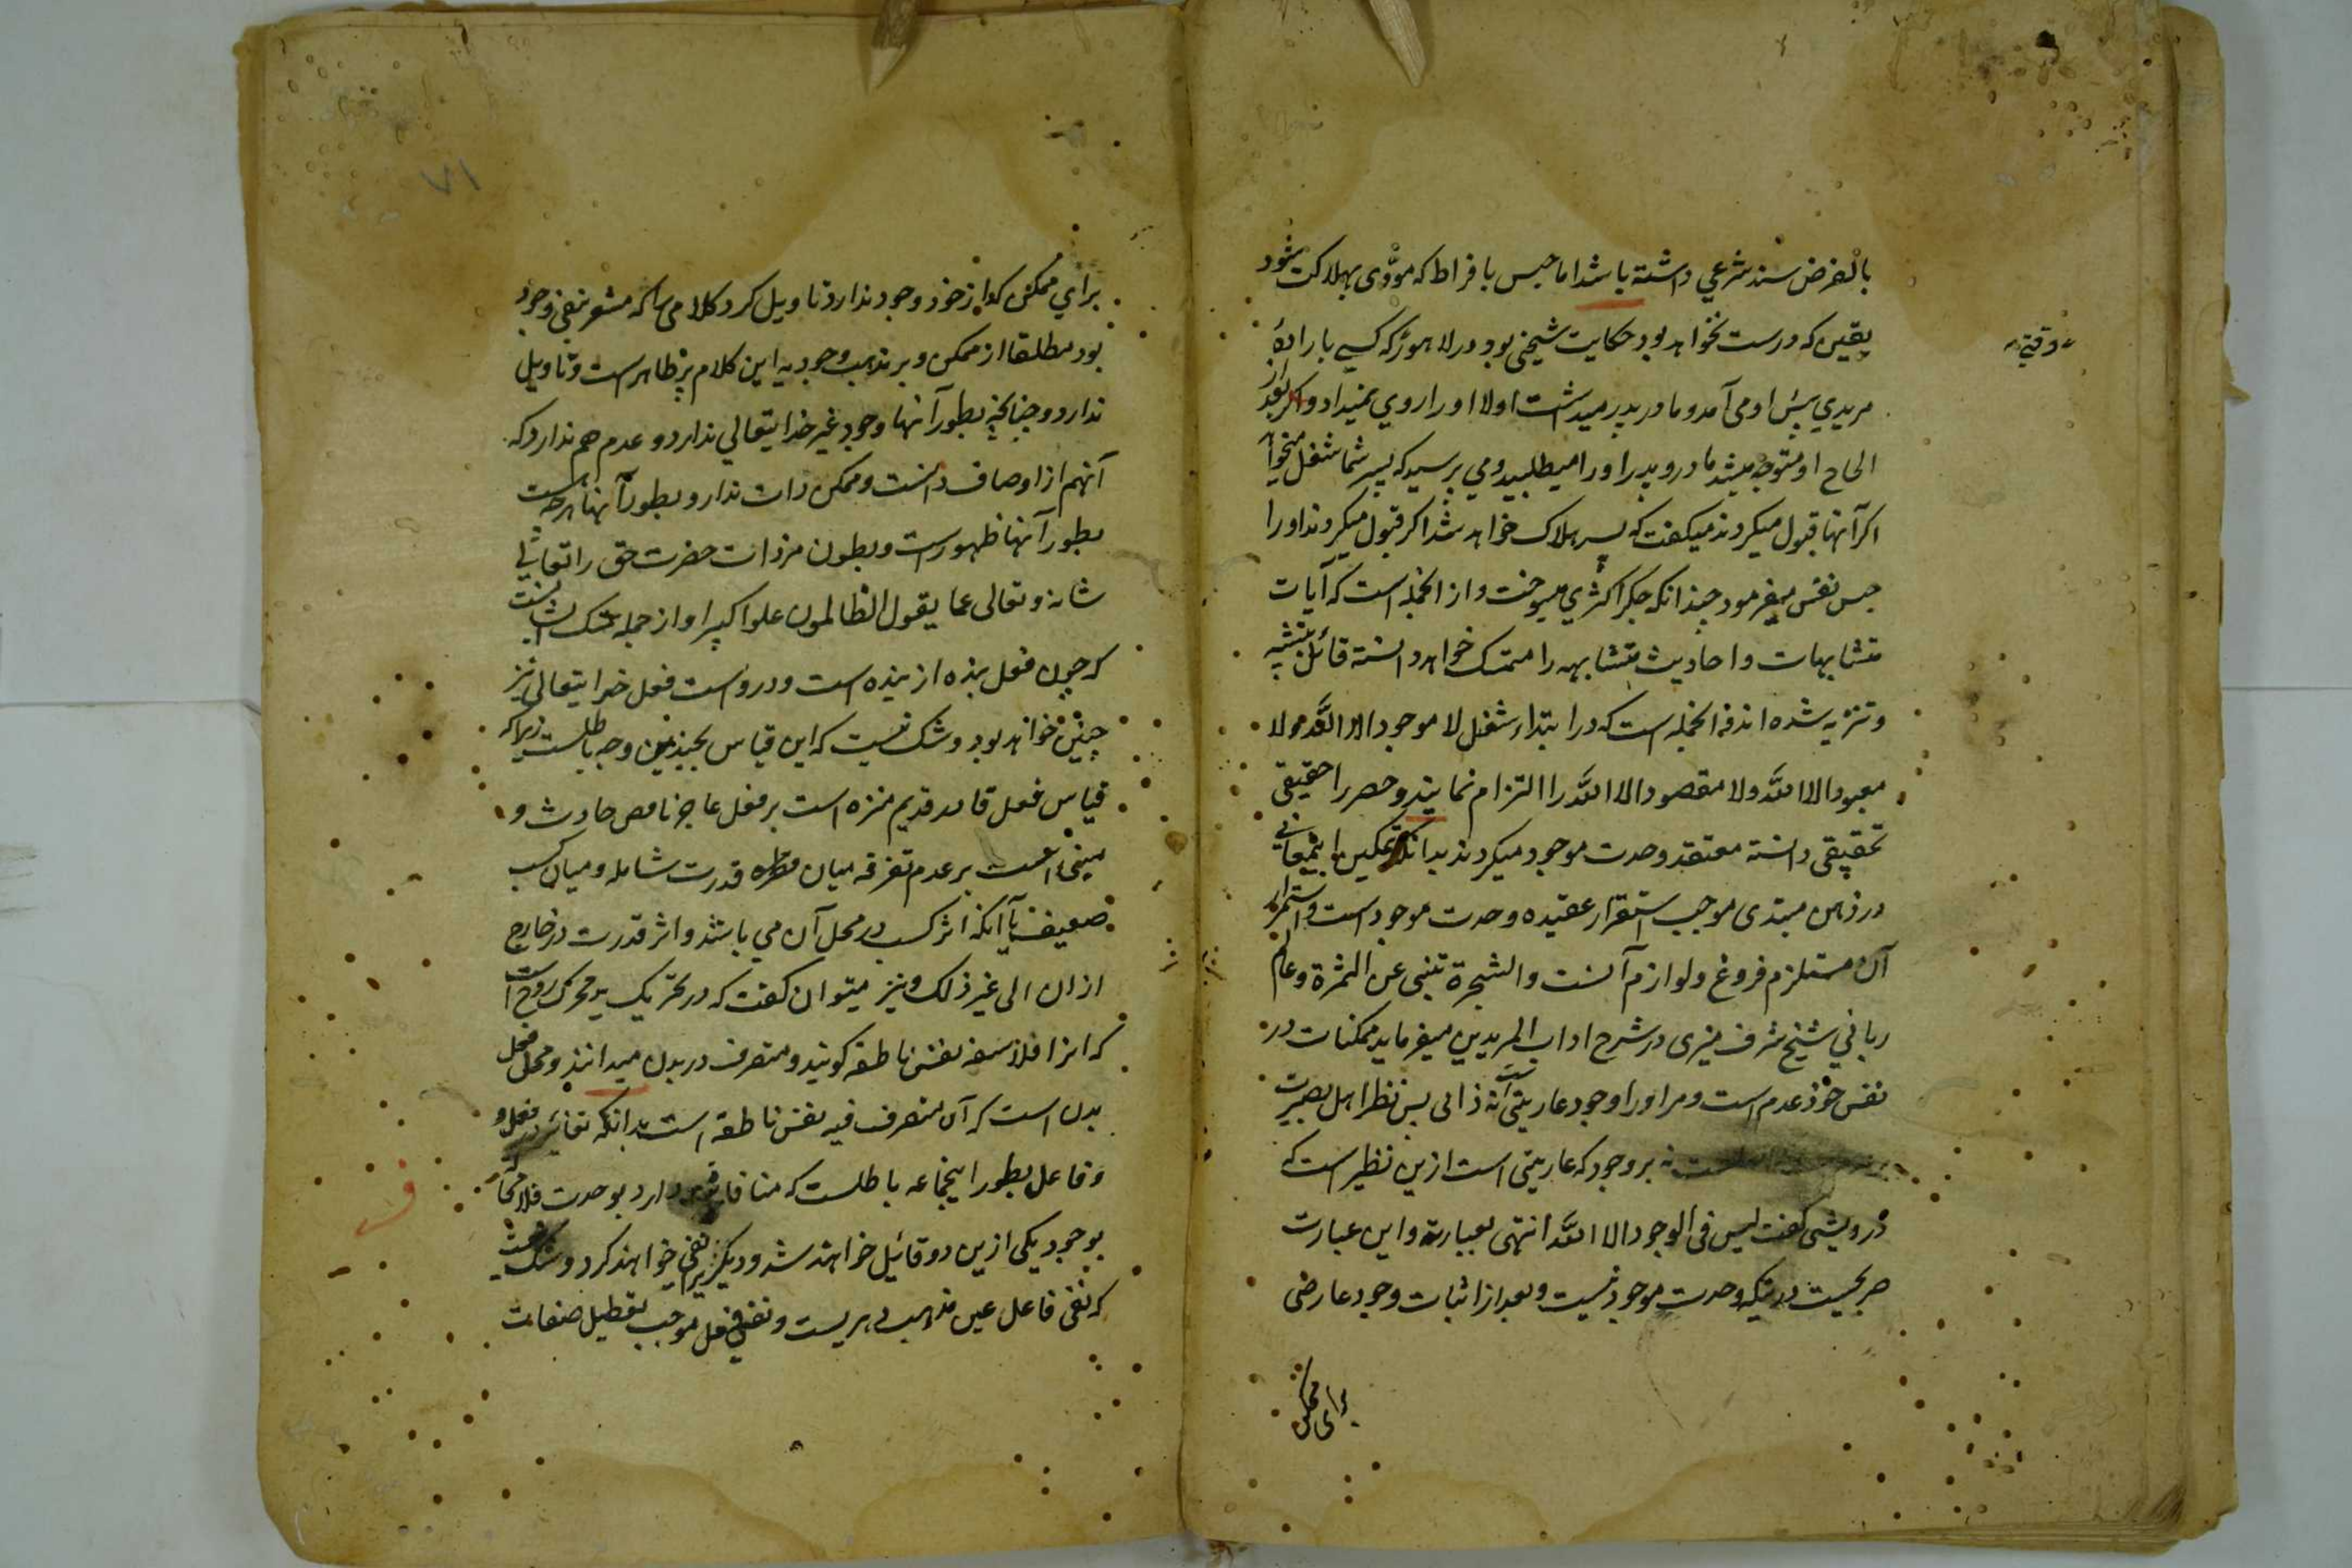 بالفرض سند شرعي داشته باشد اما حبس بافراط كه مؤدى بهلاكت شود
يقين كه درست نخواهد بود حكايت شيخى بود در لاهور كه كسي بارادهٔ
دقتى
مريدي پيش او مى آمد و مادر پدر ميداشت اولا او را روي نميداد و اكر بعد از
الحاح او متوجه ميشد مادر و پدر او را ميطلبيد ومي پرسيد كه پسر شما شغل ميخواهد
اكر آنها قبول ميكردند ميكفت كه پسر هلاك خواهد شد اكر قبول ميكردند او را
حبس نفس ميفرمود چندانكه جكر اكثري ميسوخت و از انجمله است كه آيات
متشابهات و احاديث متشابهه را متمسك خواهد دانسته قائل بتشبيه
و تنزيه شده اند از انجمله است كه در ابتداء شغل لا موجود الا الله و لا
معبود الا الله ولا مقصود الا الله را التزام نمايند و حصر را حقيقى
تحقيقى دانسته معتقد وحدت موجود ميكردند بدانكه تمكين اين معانى
در ذهن مبتدى موجب استقرار عقيده وحدت موجود است و استمرار
آن مستلزم فروغ و لوازم آنست والشجرة تنبى عن الثمرة و عالم
رباني شيخ شرف منيرى در شرح اداب المريدين ميفرمايد ممكنات در
نفس خود عدم است و مر او را وجود عاريتى است نه ذاتى پس نظر اهل بصيرت
نه بر وجود كه عاريتى است ازين نظير است كه
درويشى كفت ليس فى الوجود الا الله انتهى بعبارته و اين عبارت
صريحست درينكه وحدت موجود نيست و بعد از اثبات وجود عارضى
براى ممكن
٧١
براي ممكن كه او از خود وجود ندارد تاويل كرد كلامى را كه مشعر بنفى وجود
بود مطلقا از ممكن و بر مذهب وجوديه اين كلام بر ظاهر است و تاويل
ندارد و چنانچه بطور آنها وجود غير خدايتعالي ندارد و عدم هم ندارد كه
آنهم از اوصاف ذاتست و ممكن ذات ندارد و بطور آنها هر چه هست
بطور آنها ظهور است و بطون مر ذات حضرت حق را تعالي
شانه و تعالى عما يقول الظالمون علوا كبيرا و از جمله تمسك ايشانست
كه چون فعل بنده از بنده است و در وست فعل خدايتعالى نيز
چنين خواهد بود و شك نيست كه اين قياس بچندين وجه باطلست زيرا كه
قياس فعل قادر قديم منزه است بر فعل عاجز ناقص حادث و
مبنى است بر عدم تفرقه ميان قدرت شامله و ميان كسب
ضعيف با آنكه اثر كسب در محل آن مي باشد و اثر قدرت در خارج
از ان الى غير ذلك و نيز ميتوان كفت كه در تحريك يد محرك روح است
كه انرا فلاسفه نفس ناطقه كويند و متصرف در بدن ميدانند و محل فعل
بدن است كه آن متصرف فيه نفس ناطقه است بدانكه تغائر در فعل و
و فاعل بطور اينجماعه باطلست كه منافات دارد بوحدت
بوجود يكى ازين دو قائيل خواهند شد و ديكريرا نفى خواهند كرد و شك نيست
كه نفى فاعل عين مذهب دهريست و نفى فعل موجب تعطيل صفات